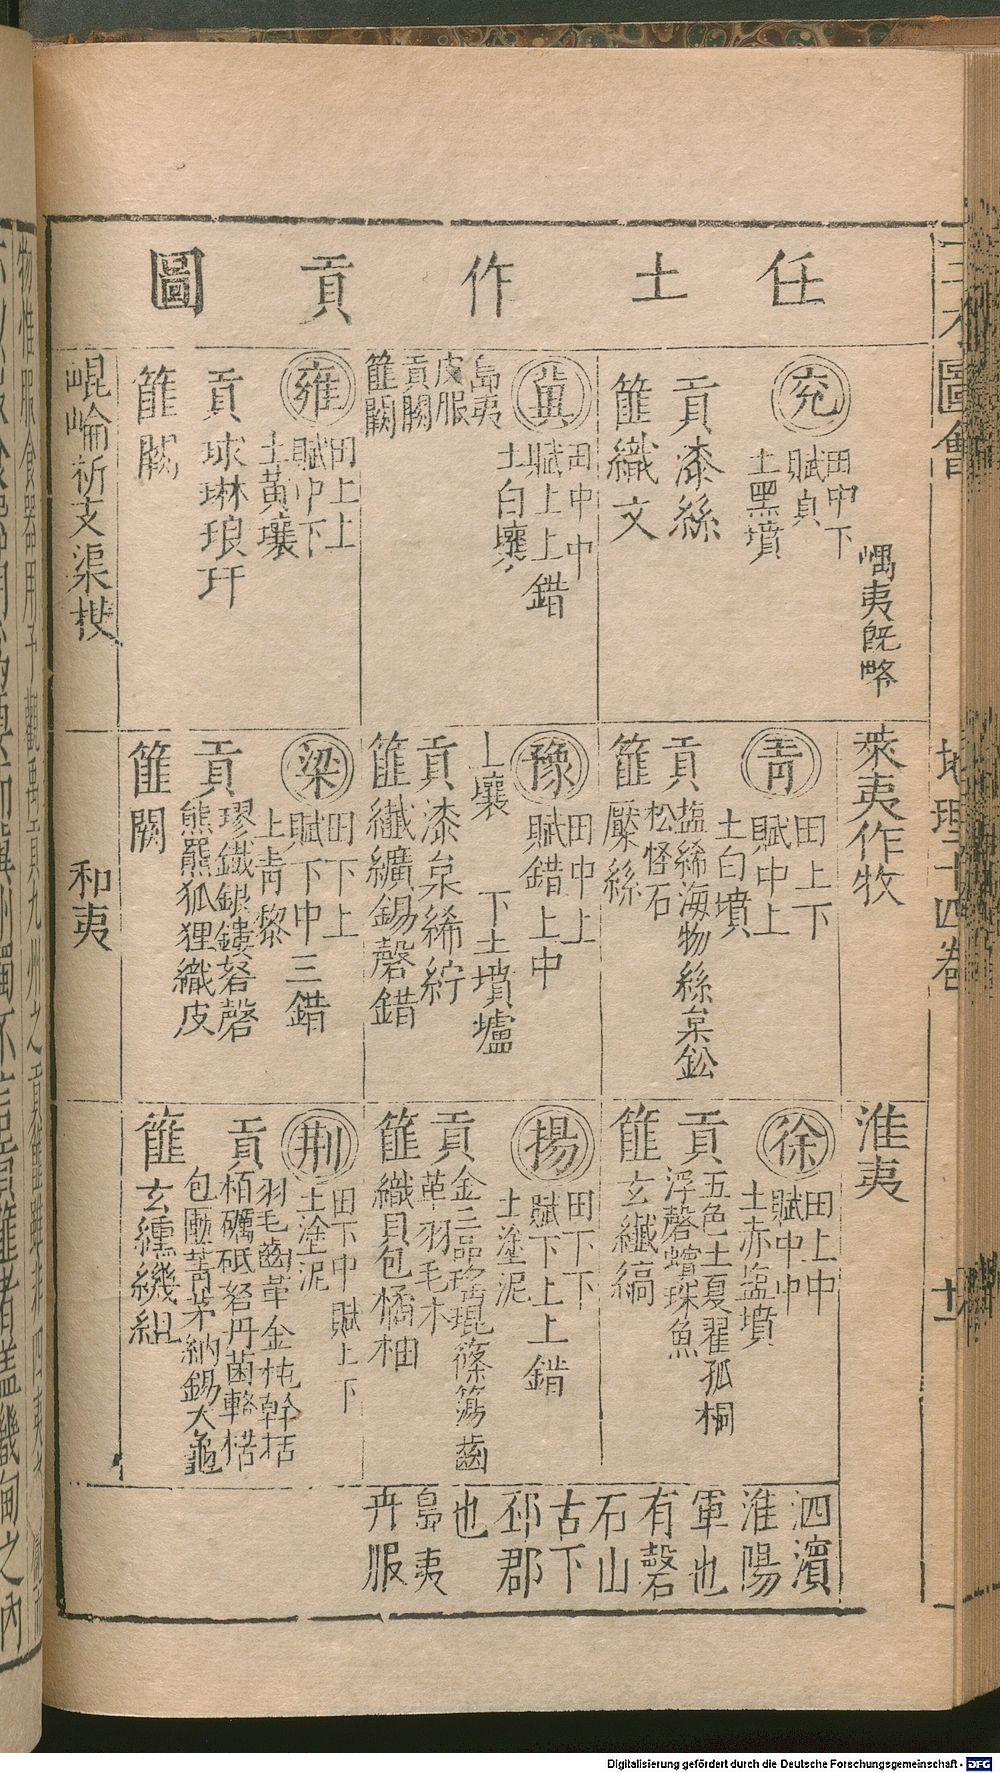 任土作貢圖
嵎夷旣略
兖
田中下
賦貞
土黑墳
貢漆絲
篚織文
冀
田中中
賦上上錯
土白壤
島夷
皮服
貢闕
篚闕
雍
田上上
賦中下
土黃壤
貢球琳琅玕
篚闕
崐崘析支渠搜
萊夷作牧
青
田上下
賦中上
土白墳
貢塩絺海物絲枲鈆
松怪石
篚檿絲
豫
田中上
賦錯上中
上壤 下土墳壚
貢漆枲絺紵
篚纎纊錫磬錯
梁
田下上
賦下中三錯
上青黎
貢璆鐵銀鏤砮磬
熊羆狐狸織皮
篚闕
和夷
淮夷
徐
田上中
賦中中
土赤塩墳
貢五色土夏翟孤桐
浮磬蠙珠魚
篚玄纎縞
揚
田下下
賦下上上錯
土塗泥
貢金三品瑤琨篠簜齒
革羽毛木
篚織貝包橘柚
荆
田下中賦上下
土塗泥
貢羽毛齒革金杶幹栝
栢礪砥砮丹菌簵楛
包匭菁茅納錫大龜
篚玄纁璣組
泗濱
淮陽
軍也
有磬
石山
古下
邳郡
也
島夷
卉服
圖會
地理十四卷
Digitalisierung gefördert durch die Deutsche Forschungsgemeinschaft - DFG